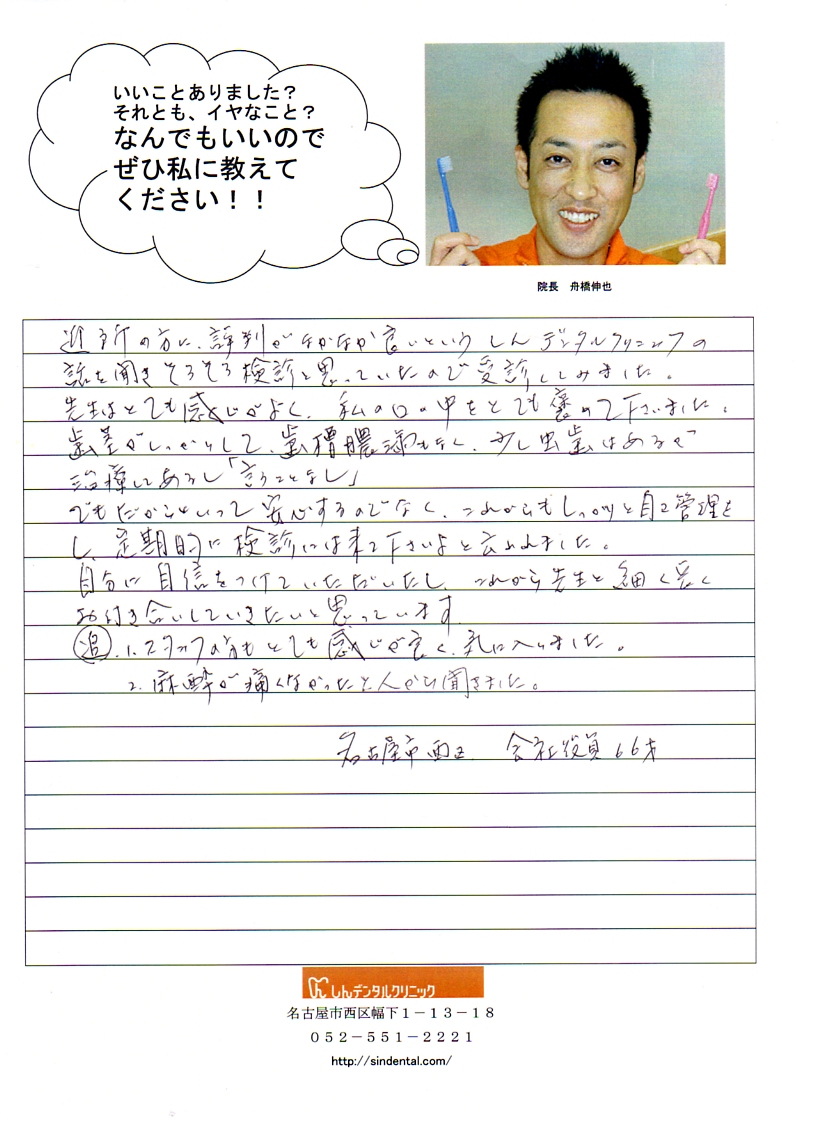 いいことありました？
それとも、イヤなこと？
なんでもいいので
ぜひ私に教えて
ください！！
院長　舟橋伸也
近所の方に、評判がなかなか良いという しんデンタルクリニックの
話を聞きそろそろ検診と思っていたので受診してみました。
先生はとても感じがよく、私の口の中をとても褒めて下さいました。
歯茎がしっかりして、歯槽膿漏もなく、少し虫歯はあるが
治療してあるし「言うことなし」
でもだからといって安心するのでなく、これからもしっかりと自己管理を
し、定期的に検診には来て下さいよと云われました。
自分に自信をつけていただいたし、これから先生と細く長く
お付き合いしていきたいと思っています
追.1.スタッフの方もとても感じが良く、気に入りました。
2. 麻酔が痛くなかったと人から聞きました。
名古屋市西区　会社役員 66才
しんデンタルクリニック
名古屋市西区幅下１－１３－１８
０５２－５５１－２２２１
http://sindental.com/